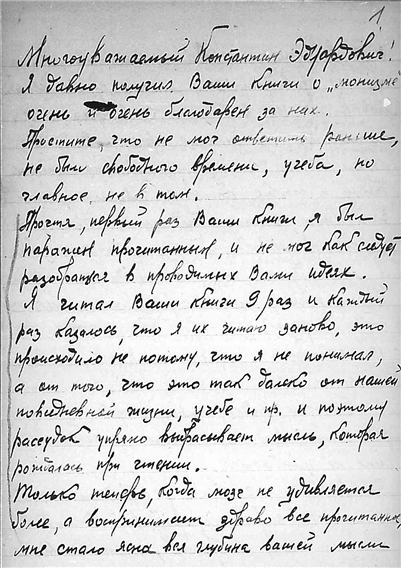 1
Многоуважаемый Константин Эдуардович!
Я давно получил Ваши книги о „монизме"
очень и очень благодарен за них.
Простите, что не мог ответить раньше,
не был свободного времени, учеба, но
главное не в том.
Прочтя, первый раз Ваши книги, я был
паражен прочитанным, и не мог как следует
разобраться в проводимых Вами идеях.
Я читал Ваши книги 9 раз и каждый
раз казалось, что я их читаю заново, это
происходило не потому, что я не понимал,
а от того, что это так далеко от нашей
повседневной жизни, учебе и пр. и поэтому
рассудок упрямо выбрасывает мысль, которая
рождалась при чтении.
Только теперь, когда мозг не удивляется
более, а воспринимает здраво все прочитанное,
мне стало ясна вся глубина вашей мысли